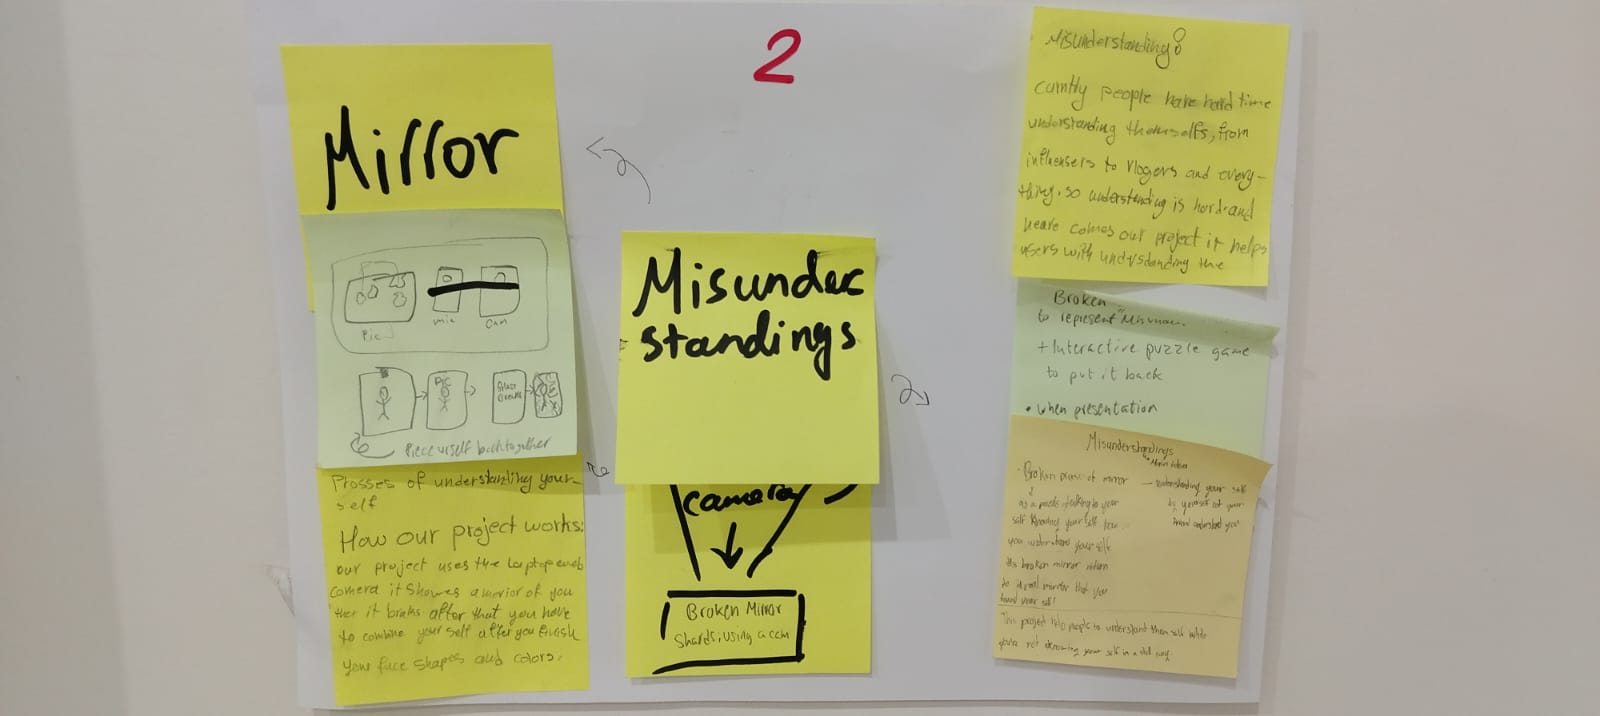 2
Mirror
Pic
mic
Cam
PIC
Glass
Breaks
Piece urself back together
Prosses of understanding your-
self
How our project works:
our project uses the Laptop web
camera it Showes a mirror of you
ther it braks after that you have
to combine your self after you finish
your face shapes and colors.
Misunder
standings
camera
Broken Mirror
Shards, using a cam
Misunderstanding:
curntly people have hard time
understanding themselfs, from
influensers to Vlogers and every-
thing. so understanding is hard and
heare comes our project it helps
users with understanding the
Broken
to represent
+ Interactive puzzle game
to put it back
• when presentation
Misunderstandings
Main idea
Broken of mirror
understanding your self
self knowing your self
you understand your self
broken mirror
to mirror that you
found your self
This project people to understand them self
not knowing your self in a